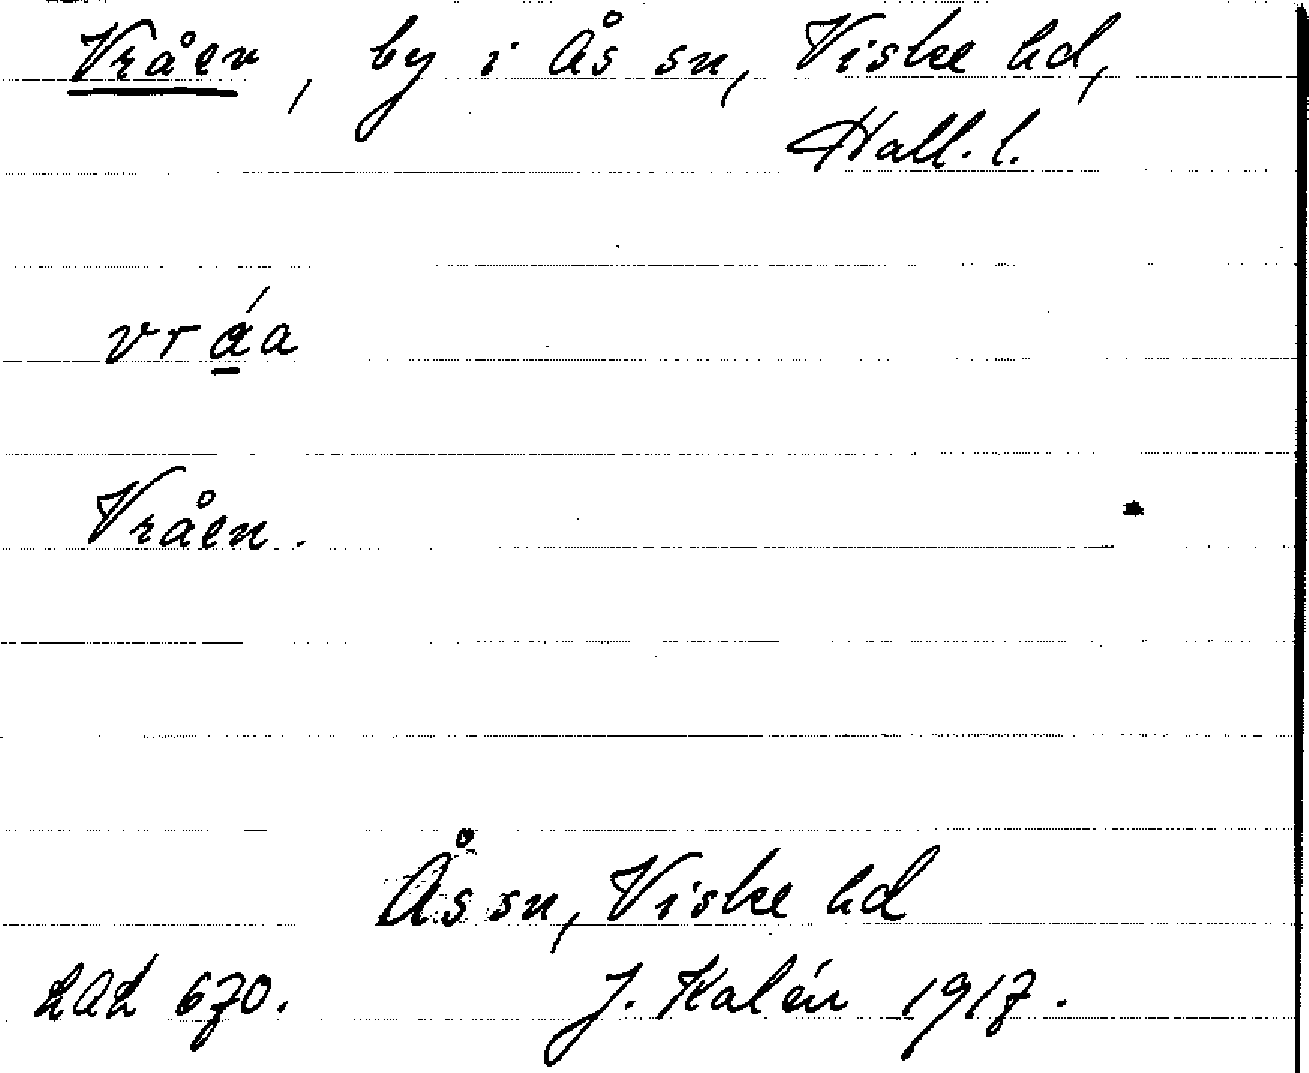 Vråen, by i Ås sn, Viske hd,
Hall. l.
vráa
Vråen.
Ås sn, Viske hd
LAL 670. J. Kalén 1917.